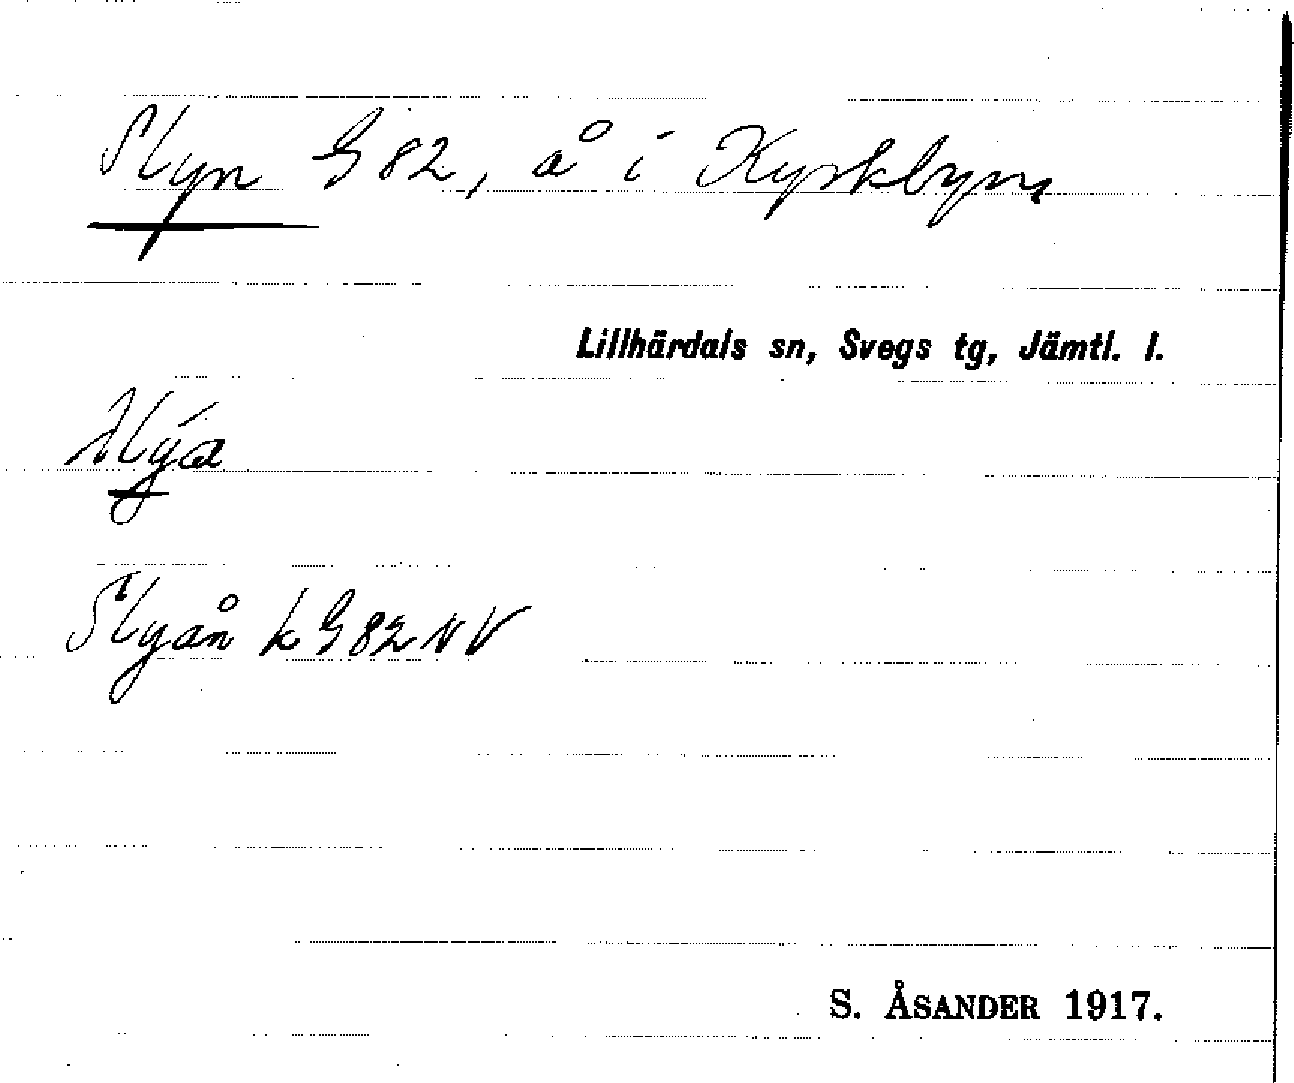 Slyn G 82, å i Kyrkbyn
Lillhärdals sn, Svegs tg, Jämtl. l.
slýa
Slyån k G 82 NV
S. ÅSANDER 1917.